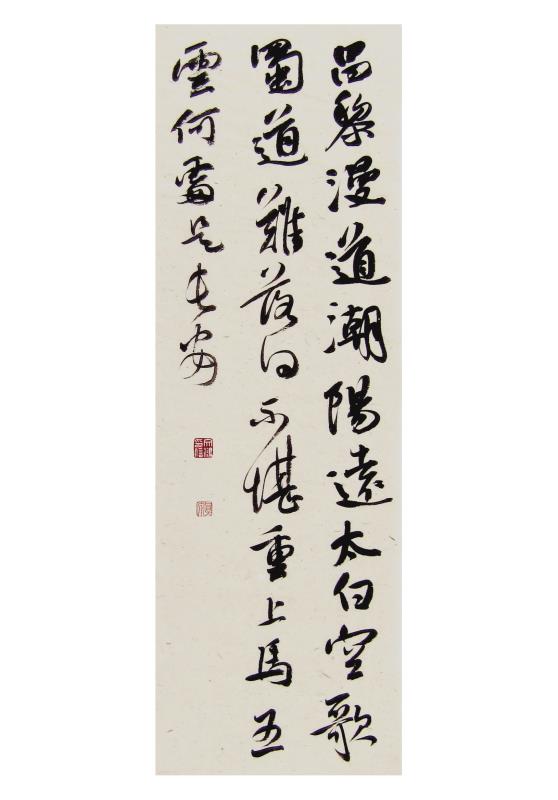 昌黎漫道潮陽遠太白空歌
蜀道難落日不堪重上馬五
雲何處是長安